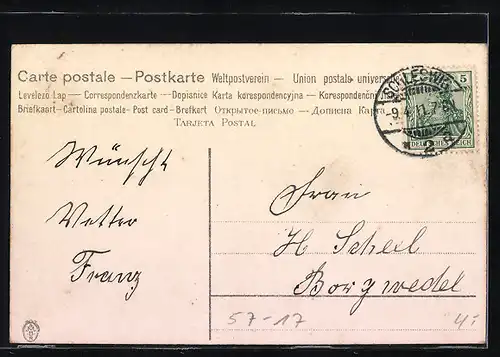 Carte postale — Postkarte Weltpostverein — Union postale universelle
Levelező-Lap — Correspondenzkarte — Dopisnice Karta korespondencyjna — Korespondenční
Briefkaart — Cartolina postale — Post card — Brefkort Открытое письмо — Дописна Карта
TARJETA POSTAL
SCHLESWIG
5
9.4.11.7-8
DEUTSCHES REICH
2 a
Wünscht
Vetter
Franz
Frau
H Scheel
Borgwedel
57-17
4,-